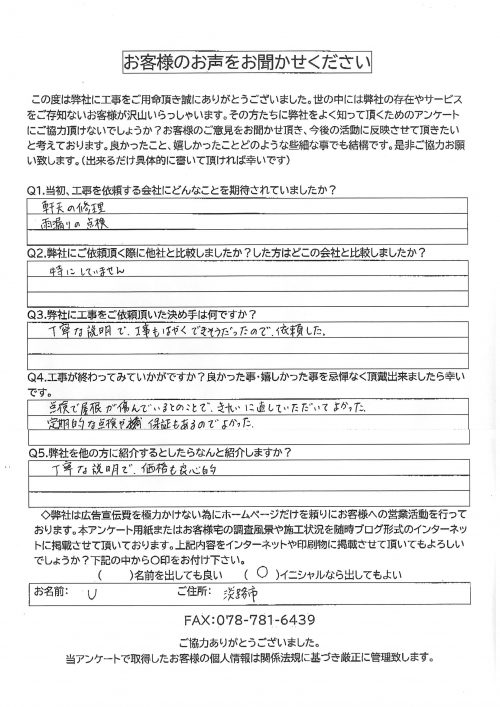 お客様のお声をお聞かせください
この度は弊社に工事をご用命頂き誠にありがとうございました。世の中には弊社の存在やサービス
をご存知ないお客様が沢山いらっしゃいます。その方たちに弊社をよく知って頂くためのアンケート
にご協力頂けないでしょうか?お客様のご意見をお聞かせ頂き、今後の活動に反映させて頂きたい
と考えております。良かったこと、嬉しかったことどのような些細な事でも結構です。是非ご協力お願
い致します。(出来るだけ具体的に書いて頂ければ幸いです)
Q1.当初、工事を依頼する会社にどんなことを期待されていましたか?
軒天の修理
雨漏りの点検
Q2.弊社にご依頼頂く際に他社と比較しましたか?した方はどこの会社と比較しましたか?
特にしていません
Q3.弊社に工事をご依頼頂いた決め手は何ですか?
丁寧な説明で、工事もはやくできそうだったので、依頼した。
Q4.工事が終わってみていかがですか?良かった事・嬉しかった事を忌憚なく頂戴出来ましたら幸い
です。
点検で屋根が傷んでいるとのことで、きれいに直していただいてよかった。
定期的な点検や 保証もあるのでよかった。
Q5.弊社を他の方に紹介するとしたらなんと紹介しますか?
丁寧な説明で、価格も良心的
◇弊社は広告宣伝費を極力かけない為にホームページだけを頼りにお客様への営業活動を行って
おります。本アンケート用紙またはお客様宅の調査風景や施工状況を随時ブログ形式のインターネッ
トに掲載させて頂いております。上記内容をインターネットや印刷物に掲載させて頂いてもよろしい
でしょうか?下記の中から〇印をお付け下さい。
( )名前を出しても良い (○)イニシャルなら出してもよい
お名前: U ご住所: 淡路市
FAX:078-781-6439
ご協力ありがとうございました。
当アンケートで取得したお客様の個人情報は関係法規に基づき厳正に管理致します。